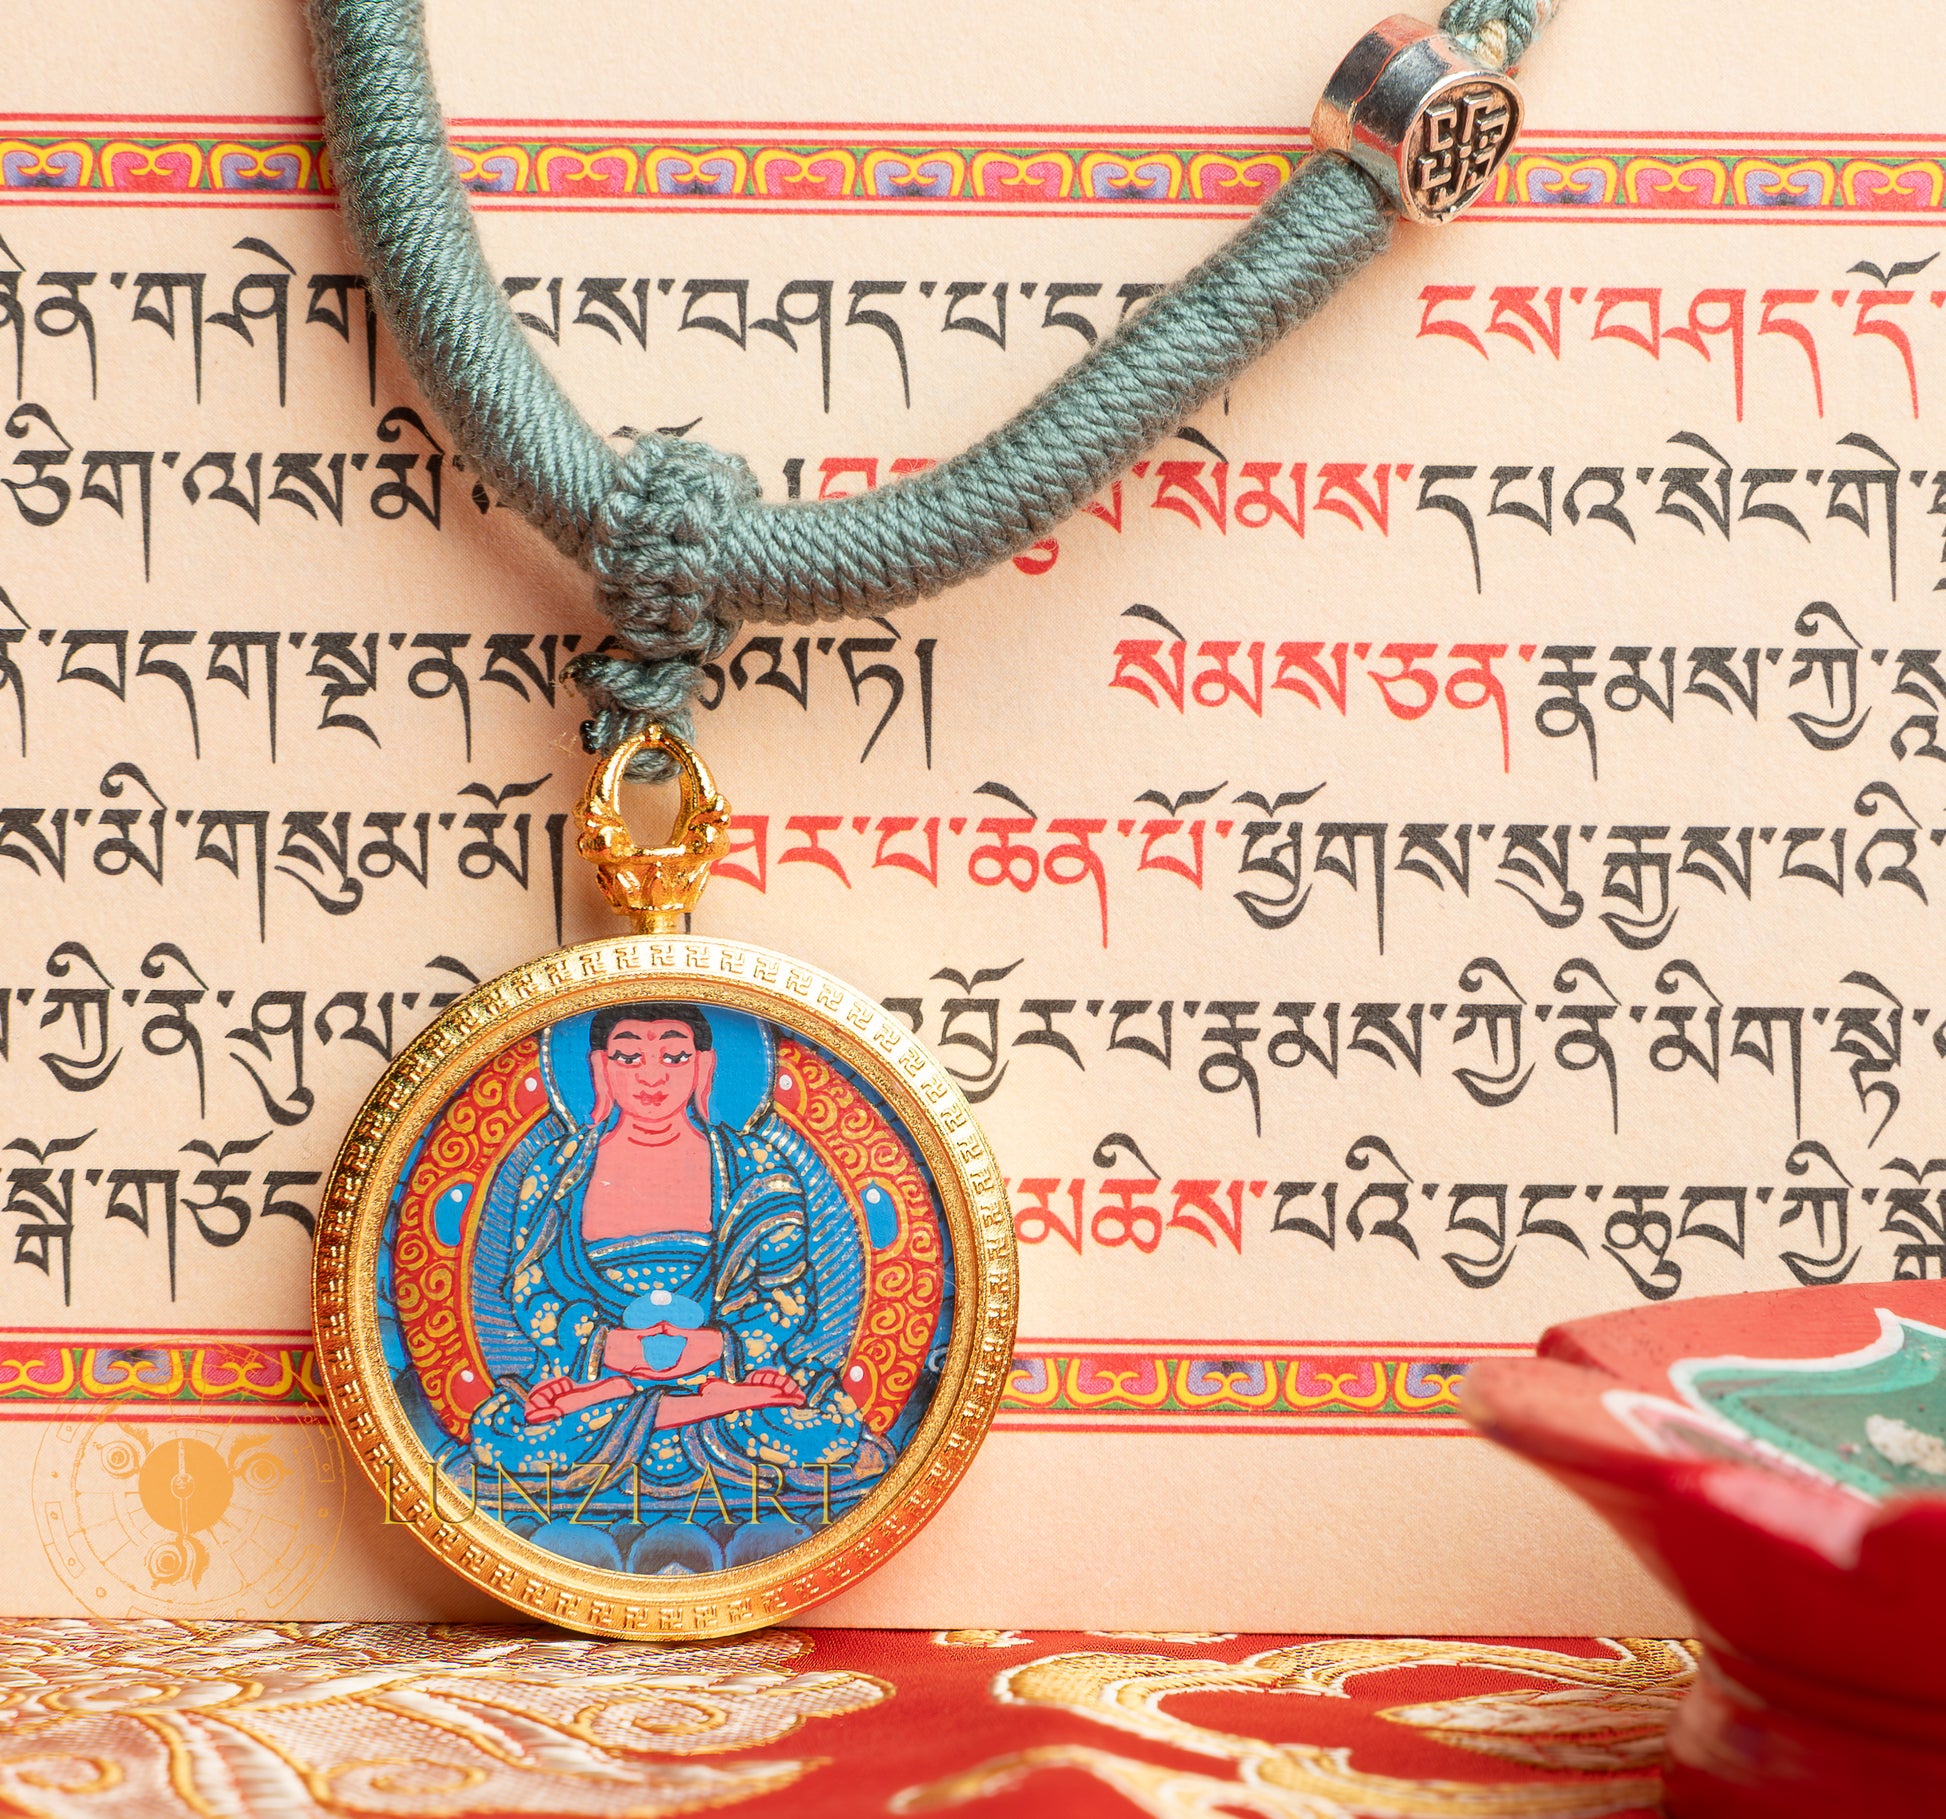 གཤེག པས་བཤད་པ་དང ངས་བཤད་དོ
ཅིག་ལས་མི སེམས་དཔའ་སེང་གེ
བདག་སྔ་ནས་ཚལ་ཏེ། སེམས་ཅན་རྣམས་ཀྱི
མི་གསུམ་མོ། ཐར་པ་ཆེན་པོ་ཕྱོགས་སུ་རྒྱས་པའི
ཀྱི་ནི་ཤུལ འབྱོར་པ་རྣམས་ཀྱི་ནི་མིག་སྟེ
སྒོ་གཅོད མཆིས་པའི་བྱང་ཆུབ་ཀྱི
LUNZI ART